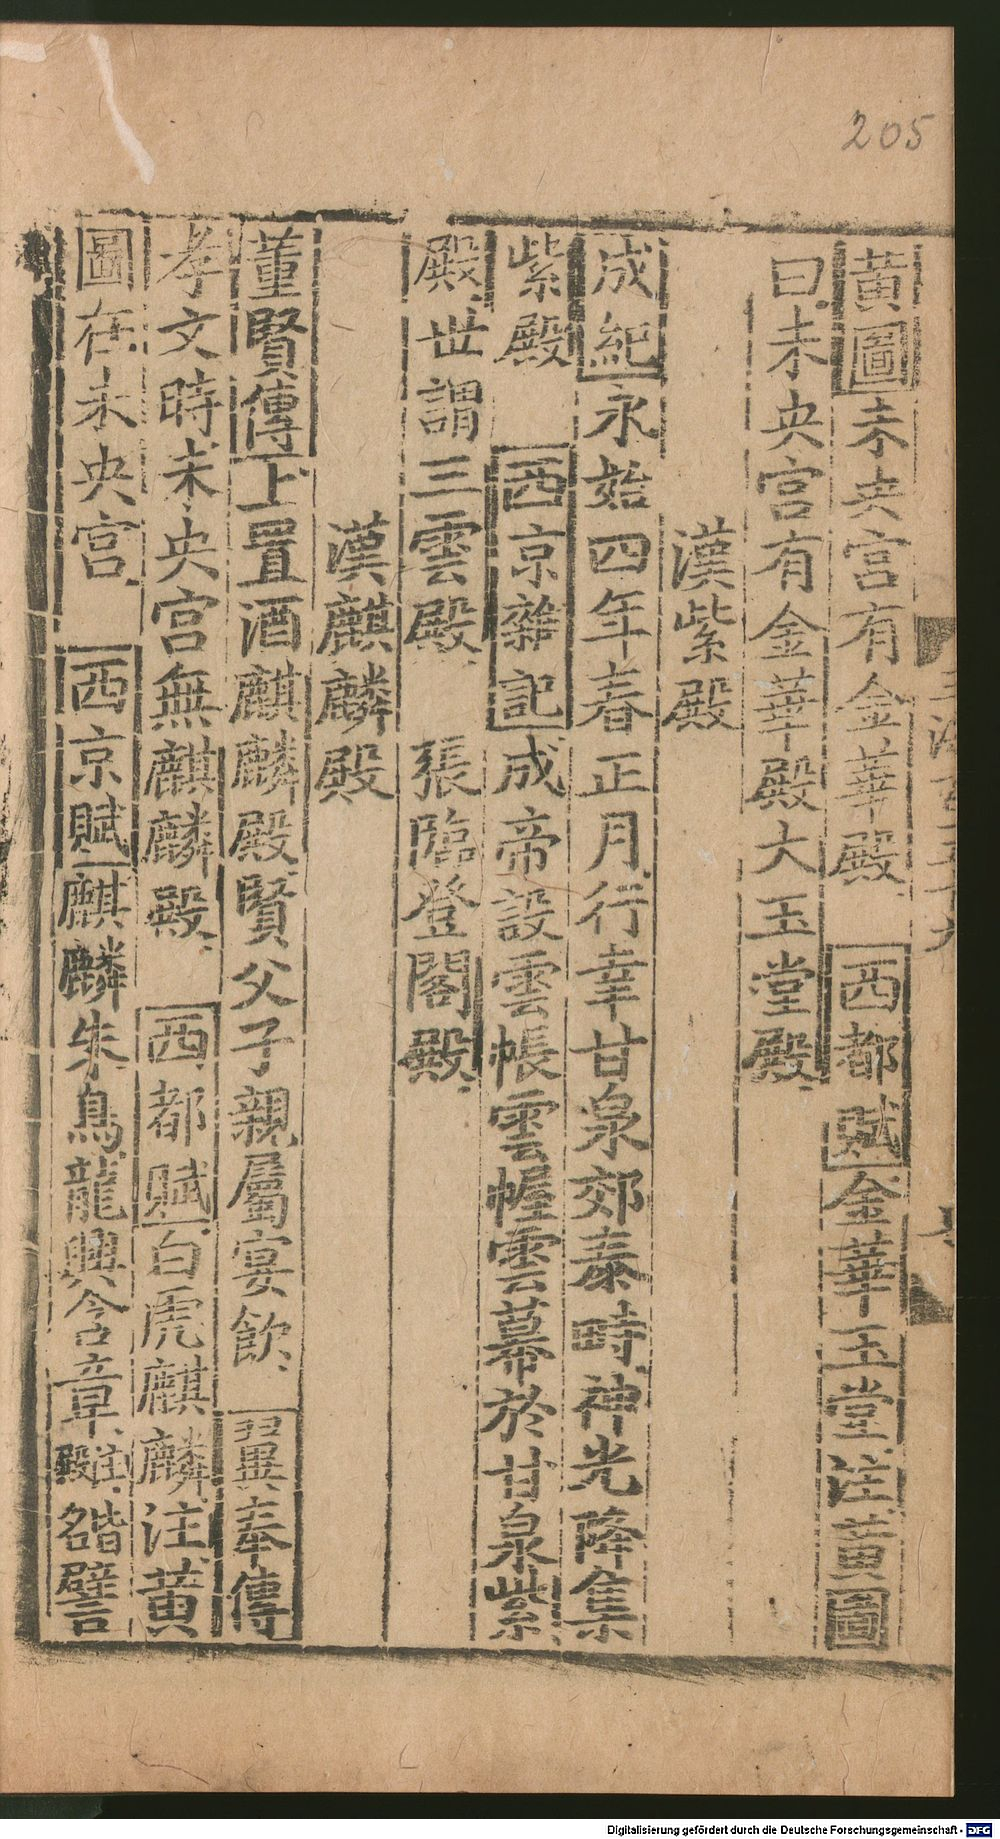 205
黃圖未央宮有金華殿 西都賦金華玉堂注黃圖
曰未央宮有金華殿大玉堂殿
漢紫殿
成紀永始四年春正月行幸甘泉郊泰畤神光降集
紫殿 西京雜記成帝設雲帳雲幄雲幕於甘泉紫
殿世謂三雲殿 張臨登閣殿
漢麒麟殿
董賢傳上置酒麒麟殿賢父子親屬宴飲 翼奉傳
孝文時未央宮無麒麟殿 西都賦白虎麒麟注黃
圖在未央宮 西京賦麒麟朱鳥龍興含章注殿名皆譬
Digitalisierung gefördert durch die Deutsche Forschungsgemeinschaft - DFG